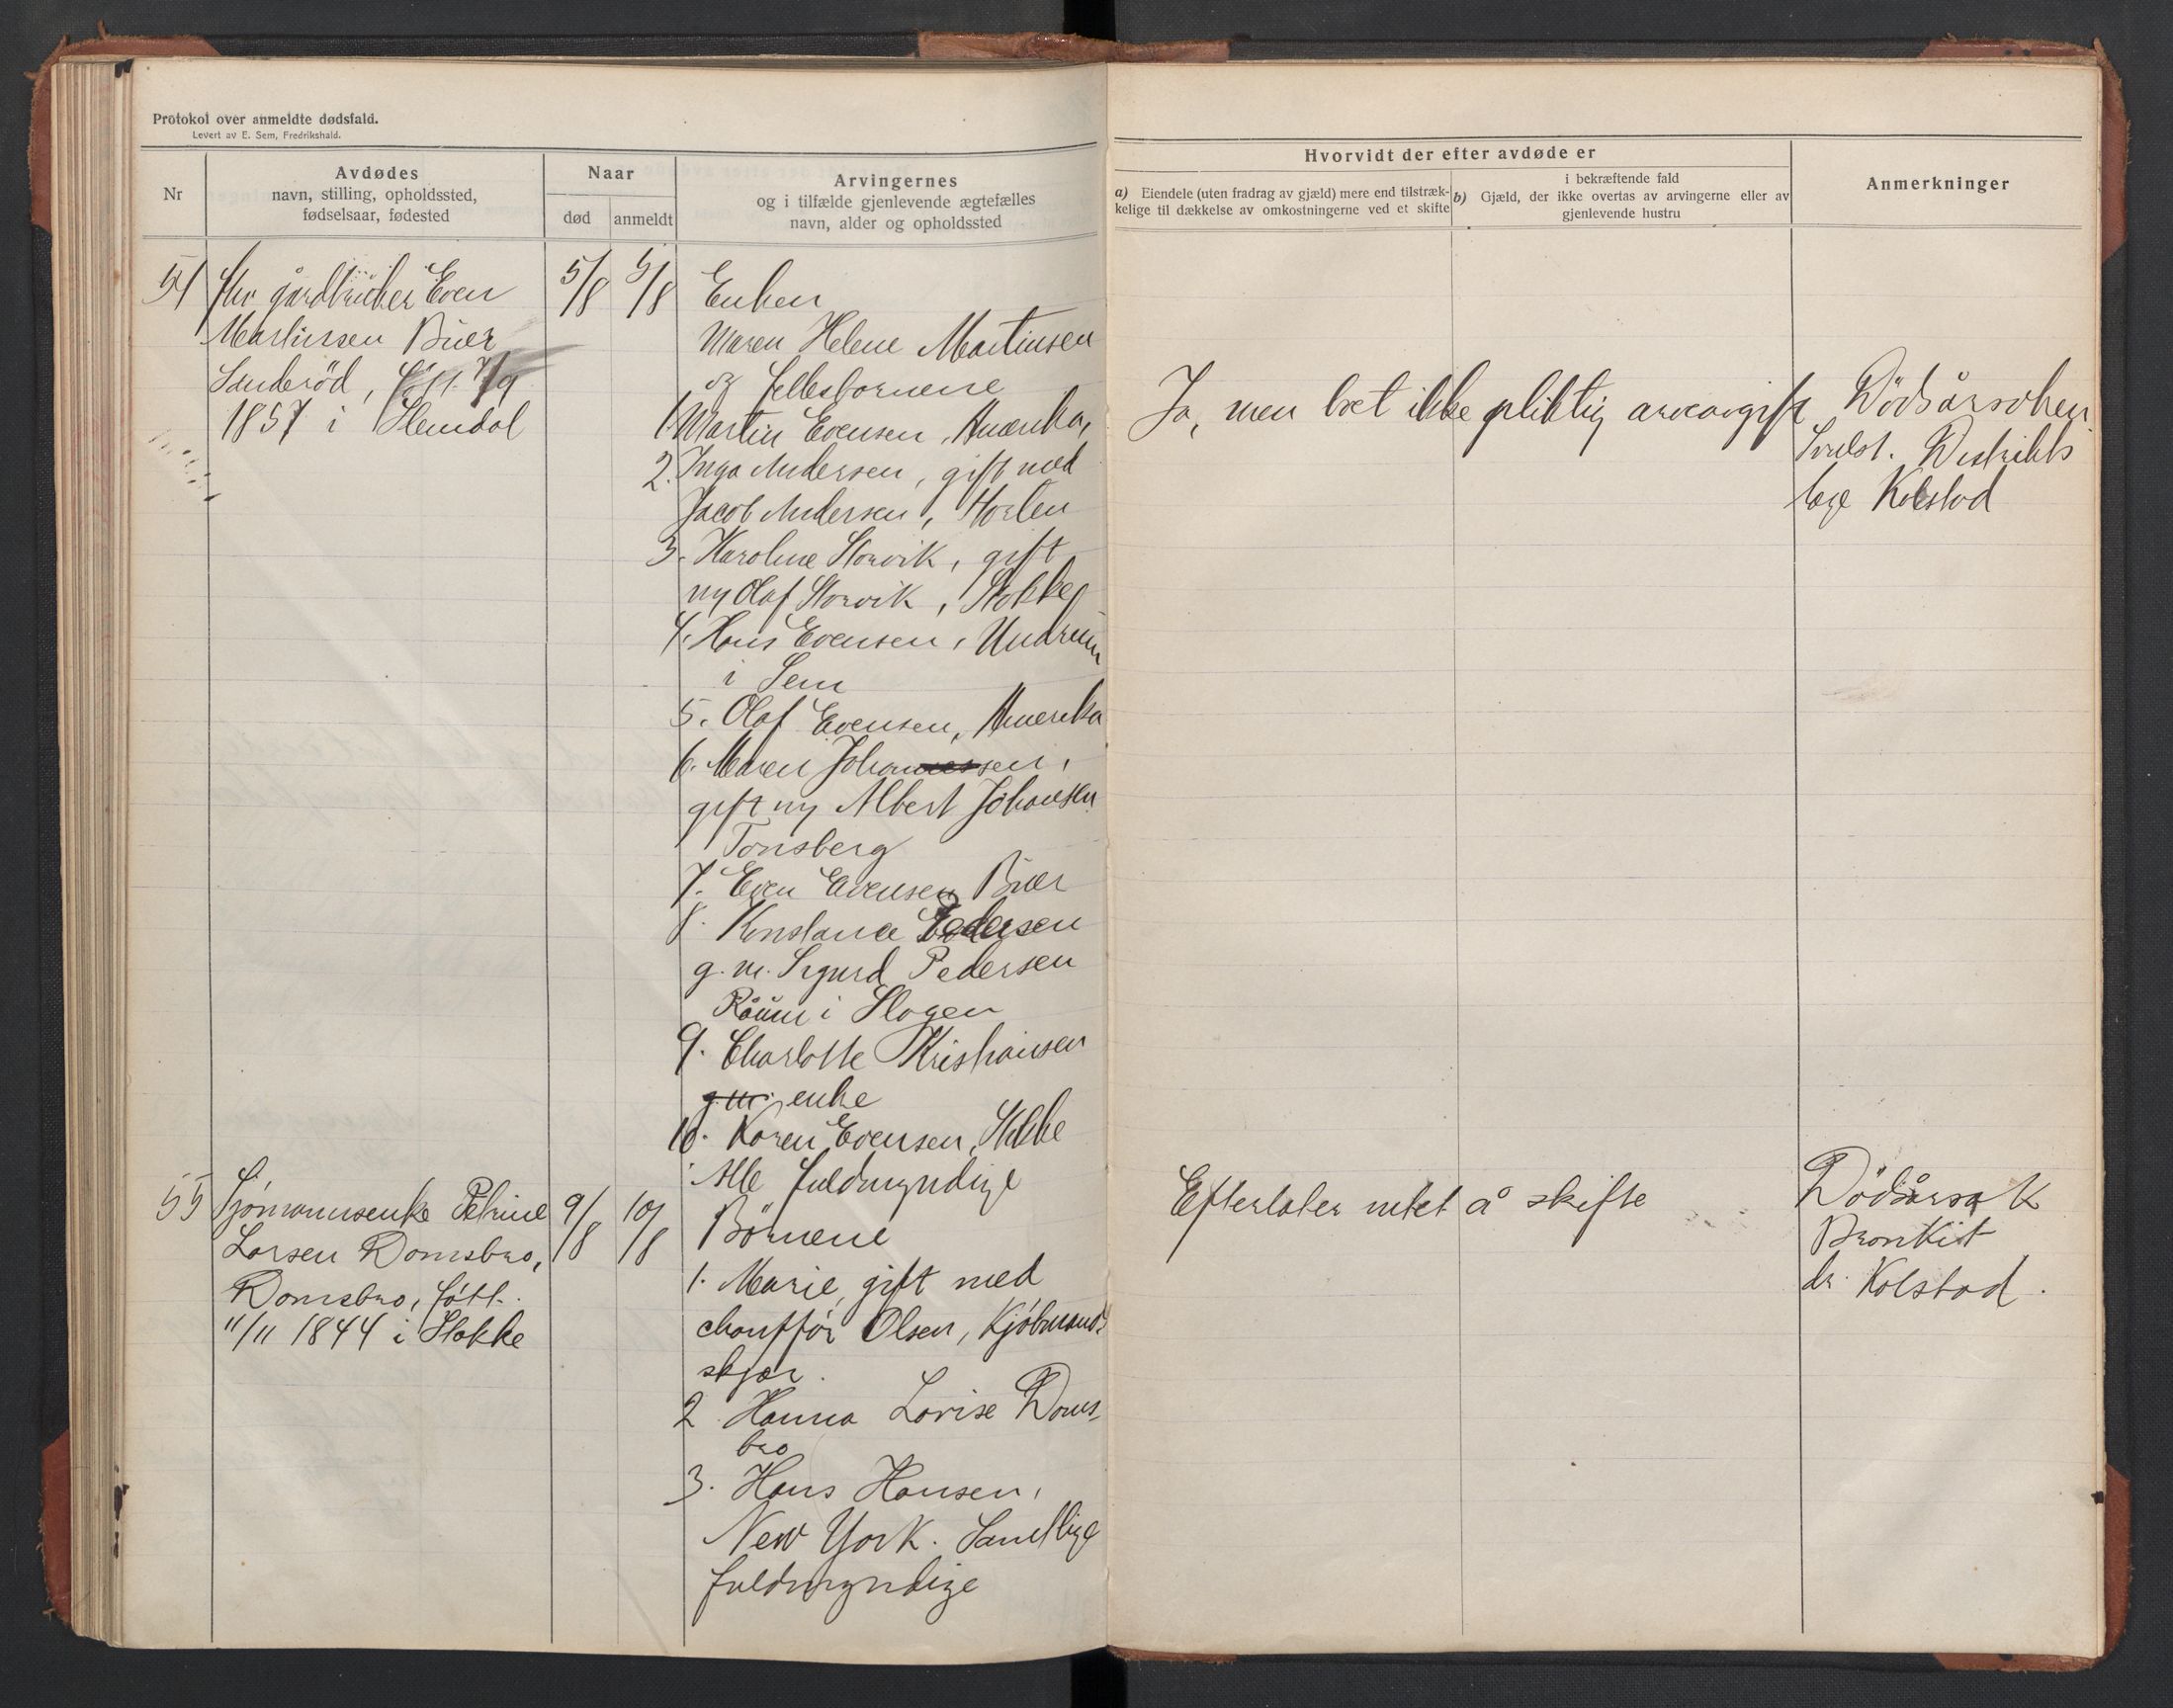 Protokol over anmeldte dødsfald.
Levert av E. Sem, Fredrikshald.
Nr
Avdødes
navn, stilling, opholdssted,
fødselsaar, fødested
Naar
død
anmeldt
Arvingernes
og i tilfælde gjenlevende ægtefælles
navn, alder og opholdssted
Hvorvidt der efter avdøde er
a) Eiendele (uten fradrag av gjæld) mere end tilstræk-
kelige til dækkelse av omkostningerne ved et skifte
i bekræftende fald
b) Gjæld, der ikke overtas av arvingerne eller av
gjenlevende hustru
Anmerkninger
54
fhv gårdbruker Even
Martinsen Buer
Sanderød, født 7/9
1857 i Slemdal
5/8
5/8
Enken
Maren Helene Martinsen
og fellesbornene
1. Martin Evensen, Amerika,
2. Inga Andersen, gift med
Jacob Andersen, Horten
3. Karoline Storvik, gift
m Olaf Storvik, Stokke
4. Hans Evensen, Undrum
i Sem
5. Olaf Evensen, Amerika
6. Maren Johannessen,
gift m Albert Johansen
Tonsberg
7. Even Evensen Buer
8. Konstance Pedersen
g. m. Sigurd Pedersen
Råum i Slagen
9. Charlotte Kristiansen
g. m. enke
10. Karen Evensen, Stokke
Alle fuldmyndige
Ja, men boet ikke pliktig arveavgift
Dödsårsaken
Distrikts
læge Kolstad
55
Sjómannsenke Petrine
Larsen Domsbro,
Domsbro, fött.
11/11 1844 i Stokke
9/8
10/8
Börnene
1. Marie, gift med
chaufför Olsen, Kjöbmands
skjær.
2 Hanna Lovise Doms-
bro
3. Hans Hansen,
New York. Samtlige
fuldmyndige
Efterlater intet å skifte
Dödsårsak
Bronkit
dr. Kolstad.